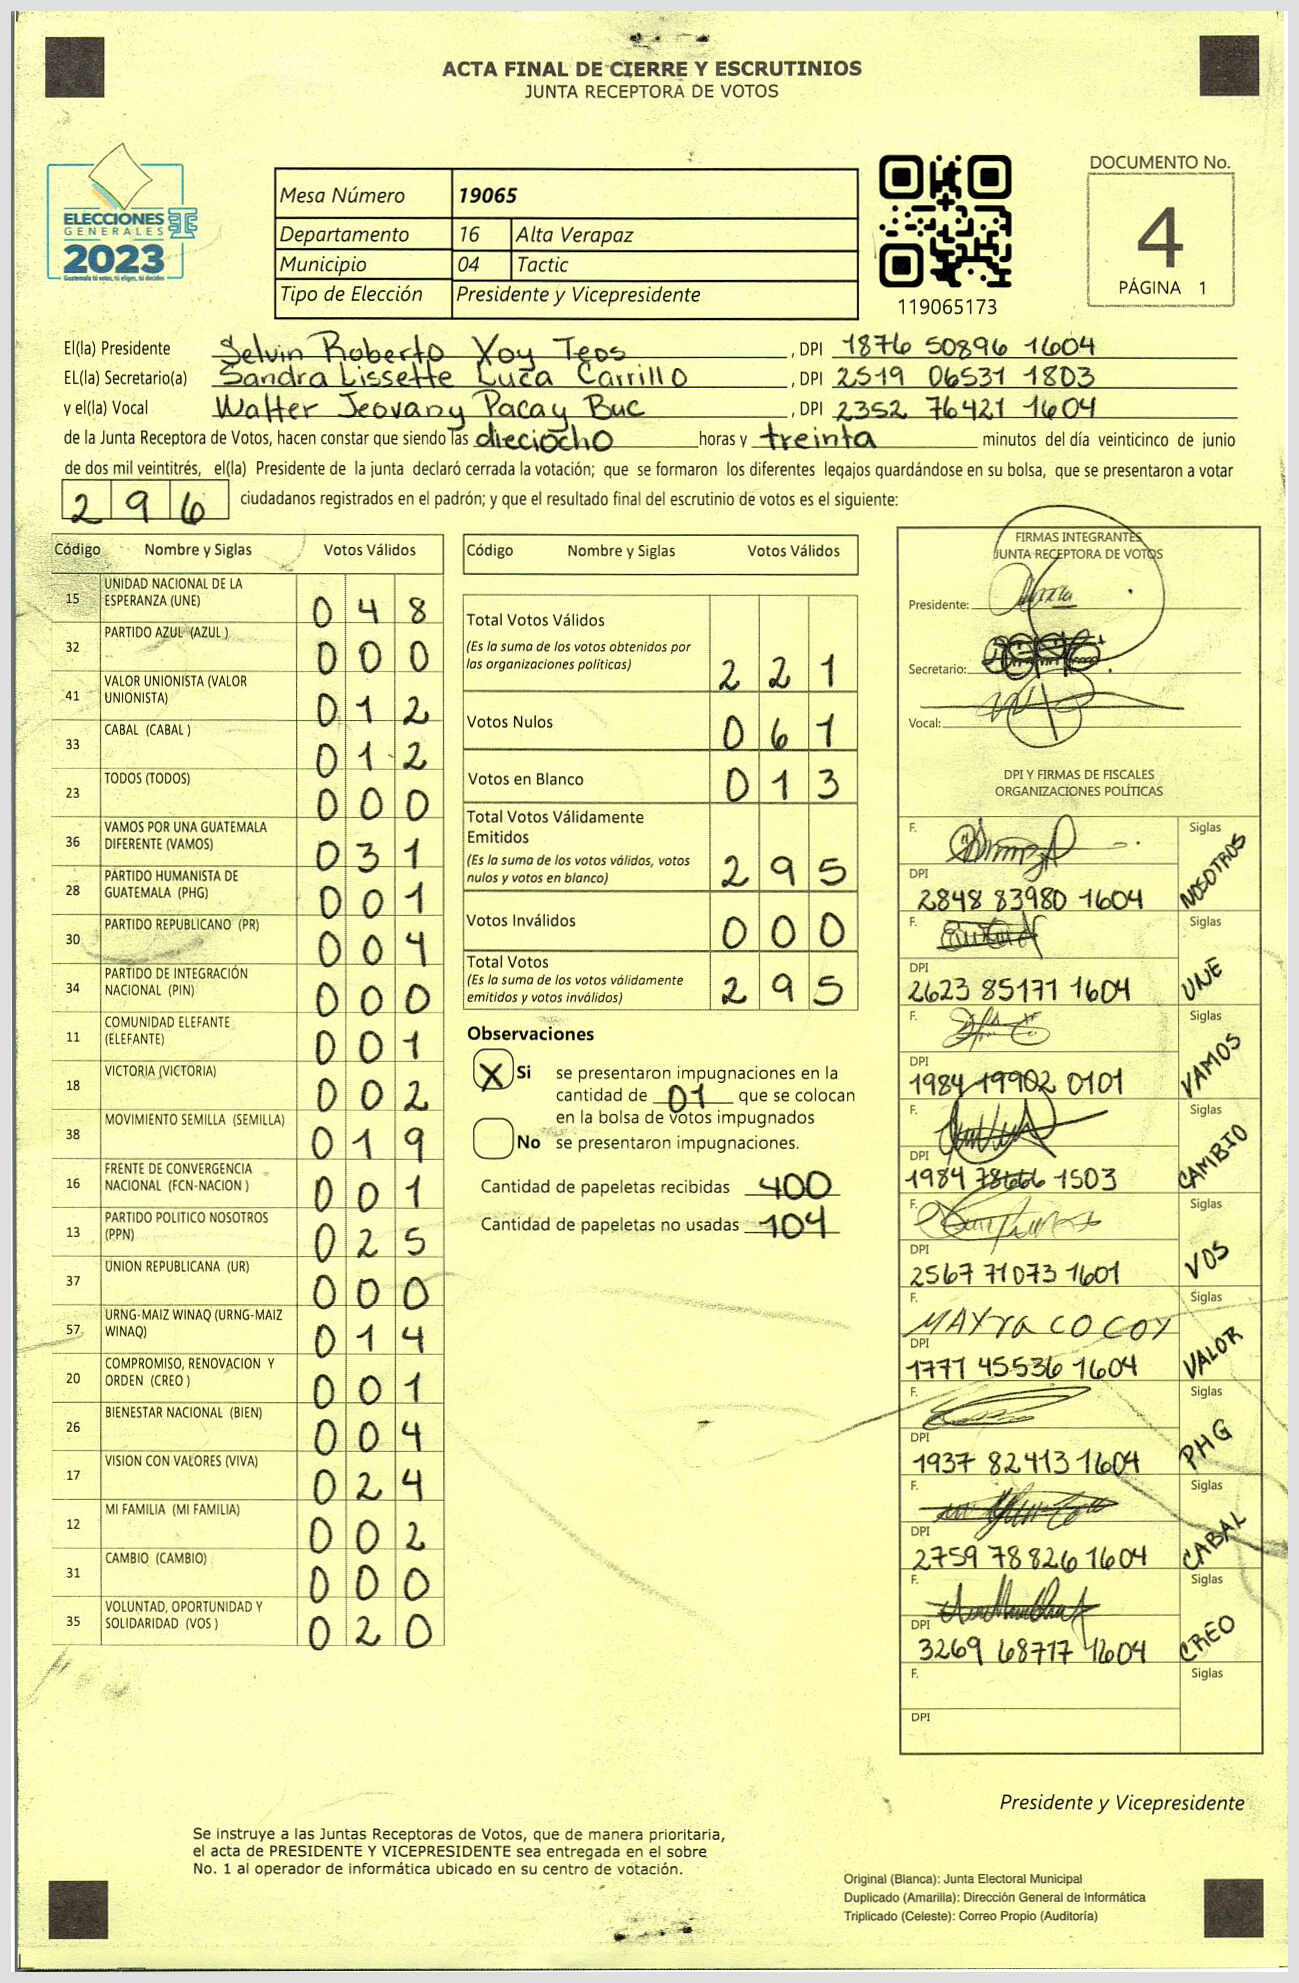 ACTA FINAL DE CIERRE Y ESCRUTINIOS
JUNTA RECEPTORA DE VOTOS
ELECCIONES
GENERALES
2023
Guatemala tú votas, tú eliges, tú decides
Mesa Número 19065
Departamento 16 Alta Verapaz
Municipio 04 Tactic
Tipo de Elección Presidente y Vicepresidente
119065173
DOCUMENTO No.
4
PÁGINA 1
El(la) Presidente Selvin Roberto Xoy Teos , DPI 1876 50896 1604
EL(la) Secretario(a) Sandra Lissette Luca Carrillo , DPI 2519 06531 1803
y el(la) Vocal Walter Jeovany Pacay Buc , DPI 2352 76421 1604
de la Junta Receptora de Votos, hacen constar que siendo las dieciocho horas y treinta minutos del día veinticinco de junio
de dos mil veintitrés, el(la) Presidente de la junta declaró cerrada la votación; que se formaron los diferentes legajos guardándose en su bolsa, que se presentaron a votar
296 ciudadanos registrados en el padrón; y que el resultado final del escrutinio de votos es el siguiente:
Código Nombre y Siglas Votos Válidos
15 UNIDAD NACIONAL DE LA
ESPERANZA (UNE) 048
32 PARTIDO AZUL (AZUL ) 000
41 VALOR UNIONISTA (VALOR
UNIONISTA) 012
33 CABAL (CABAL ) 012
23 TODOS (TODOS) 000
36 VAMOS POR UNA GUATEMALA
DIFERENTE (VAMOS) 031
28 PARTIDO HUMANISTA DE
GUATEMALA (PHG) 001
30 PARTIDO REPUBLICANO (PR) 004
34 PARTIDO DE INTEGRACIÓN
NACIONAL (PIN) 000
11 COMUNIDAD ELEFANTE
(ELEFANTE) 001
18 VICTORIA (VICTORIA) 002
38 MOVIMIENTO SEMILLA (SEMILLA) 019
16 FRENTE DE CONVERGENCIA
NACIONAL (FCN-NACION ) 001
13 PARTIDO POLITICO NOSOTROS
(PPN) 025
37 UNION REPUBLICANA (UR) 000
57 URNG-MAIZ WINAQ (URNG-MAIZ
WINAQ) 014
20 COMPROMISO, RENOVACION Y
ORDEN (CREO ) 001
26 BIENESTAR NACIONAL (BIEN) 004
17 VISION CON VALORES (VIVA) 024
12 MI FAMILIA (MI FAMILIA) 002
31 CAMBIO (CAMBIO) 000
35 VOLUNTAD, OPORTUNIDAD Y
SOLIDARIDAD (VOS ) 020
Código Nombre y Siglas Votos Válidos
Total Votos Válidos
(Es la suma de los votos obtenidos por
las organizaciones politicas) 221
Votos Nulos 061
Votos en Blanco 013
Total Votos Válidamente
Emitidos
(Es la suma de los votos válidos, votos
nulos y votos en blanco) 295
Votos Inválidos 000
Total Votos
(Es la suma de los votos válidamente
emitidos y votos inválidos) 295
Observaciones
X Si se presentaron impugnaciones en la
cantidad de 01 que se colocan
en la bolsa de votos impugnados
No se presentaron impugnaciones.
Cantidad de papeletas recibidas 400
Cantidad de papeletas no usadas 104
FIRMAS INTEGRANTES
JUNTA RECEPTORA DE VOTOS
Presidente:
Secretario:
Vocal:
DPI Y FIRMAS DE FISCALES
ORGANIZACIONES POLÍTICAS
F. Siglas
DPI
2848 83980 1604 NOSOTROS
F. Siglas
DPI
2623 85171 1604 UNE
F. Siglas
DPI
1984 19902 0101 VAMOS
F. Siglas
DPI
1984 78666 1503 CAMBIO
F. Siglas
DPI
2567 71073 1601 VOS
F. MAYra COCOY Siglas
DPI
1771 45536 1604 VALOR
F. Siglas
DPI
1937 82413 1604 PHG
F. Siglas
DPI
2759 78826 1604 CABAL
F. Siglas
DPI
3269 68717 1604 CREO
F. Siglas
DPI
Presidente y Vicepresidente
Se instruye a las Juntas Receptoras de Votos, que de manera prioritaria,
el acta de PRESIDENTE Y VICEPRESIDENTE sea entregada en el sobre
No. 1 al operador de informática ubicado en su centro de votación.
Original (Blanca): Junta Electoral Municipal
Duplicado (Amarilla): Dirección General de Informática
Triplicado (Celeste): Correo Propio (Auditoría)